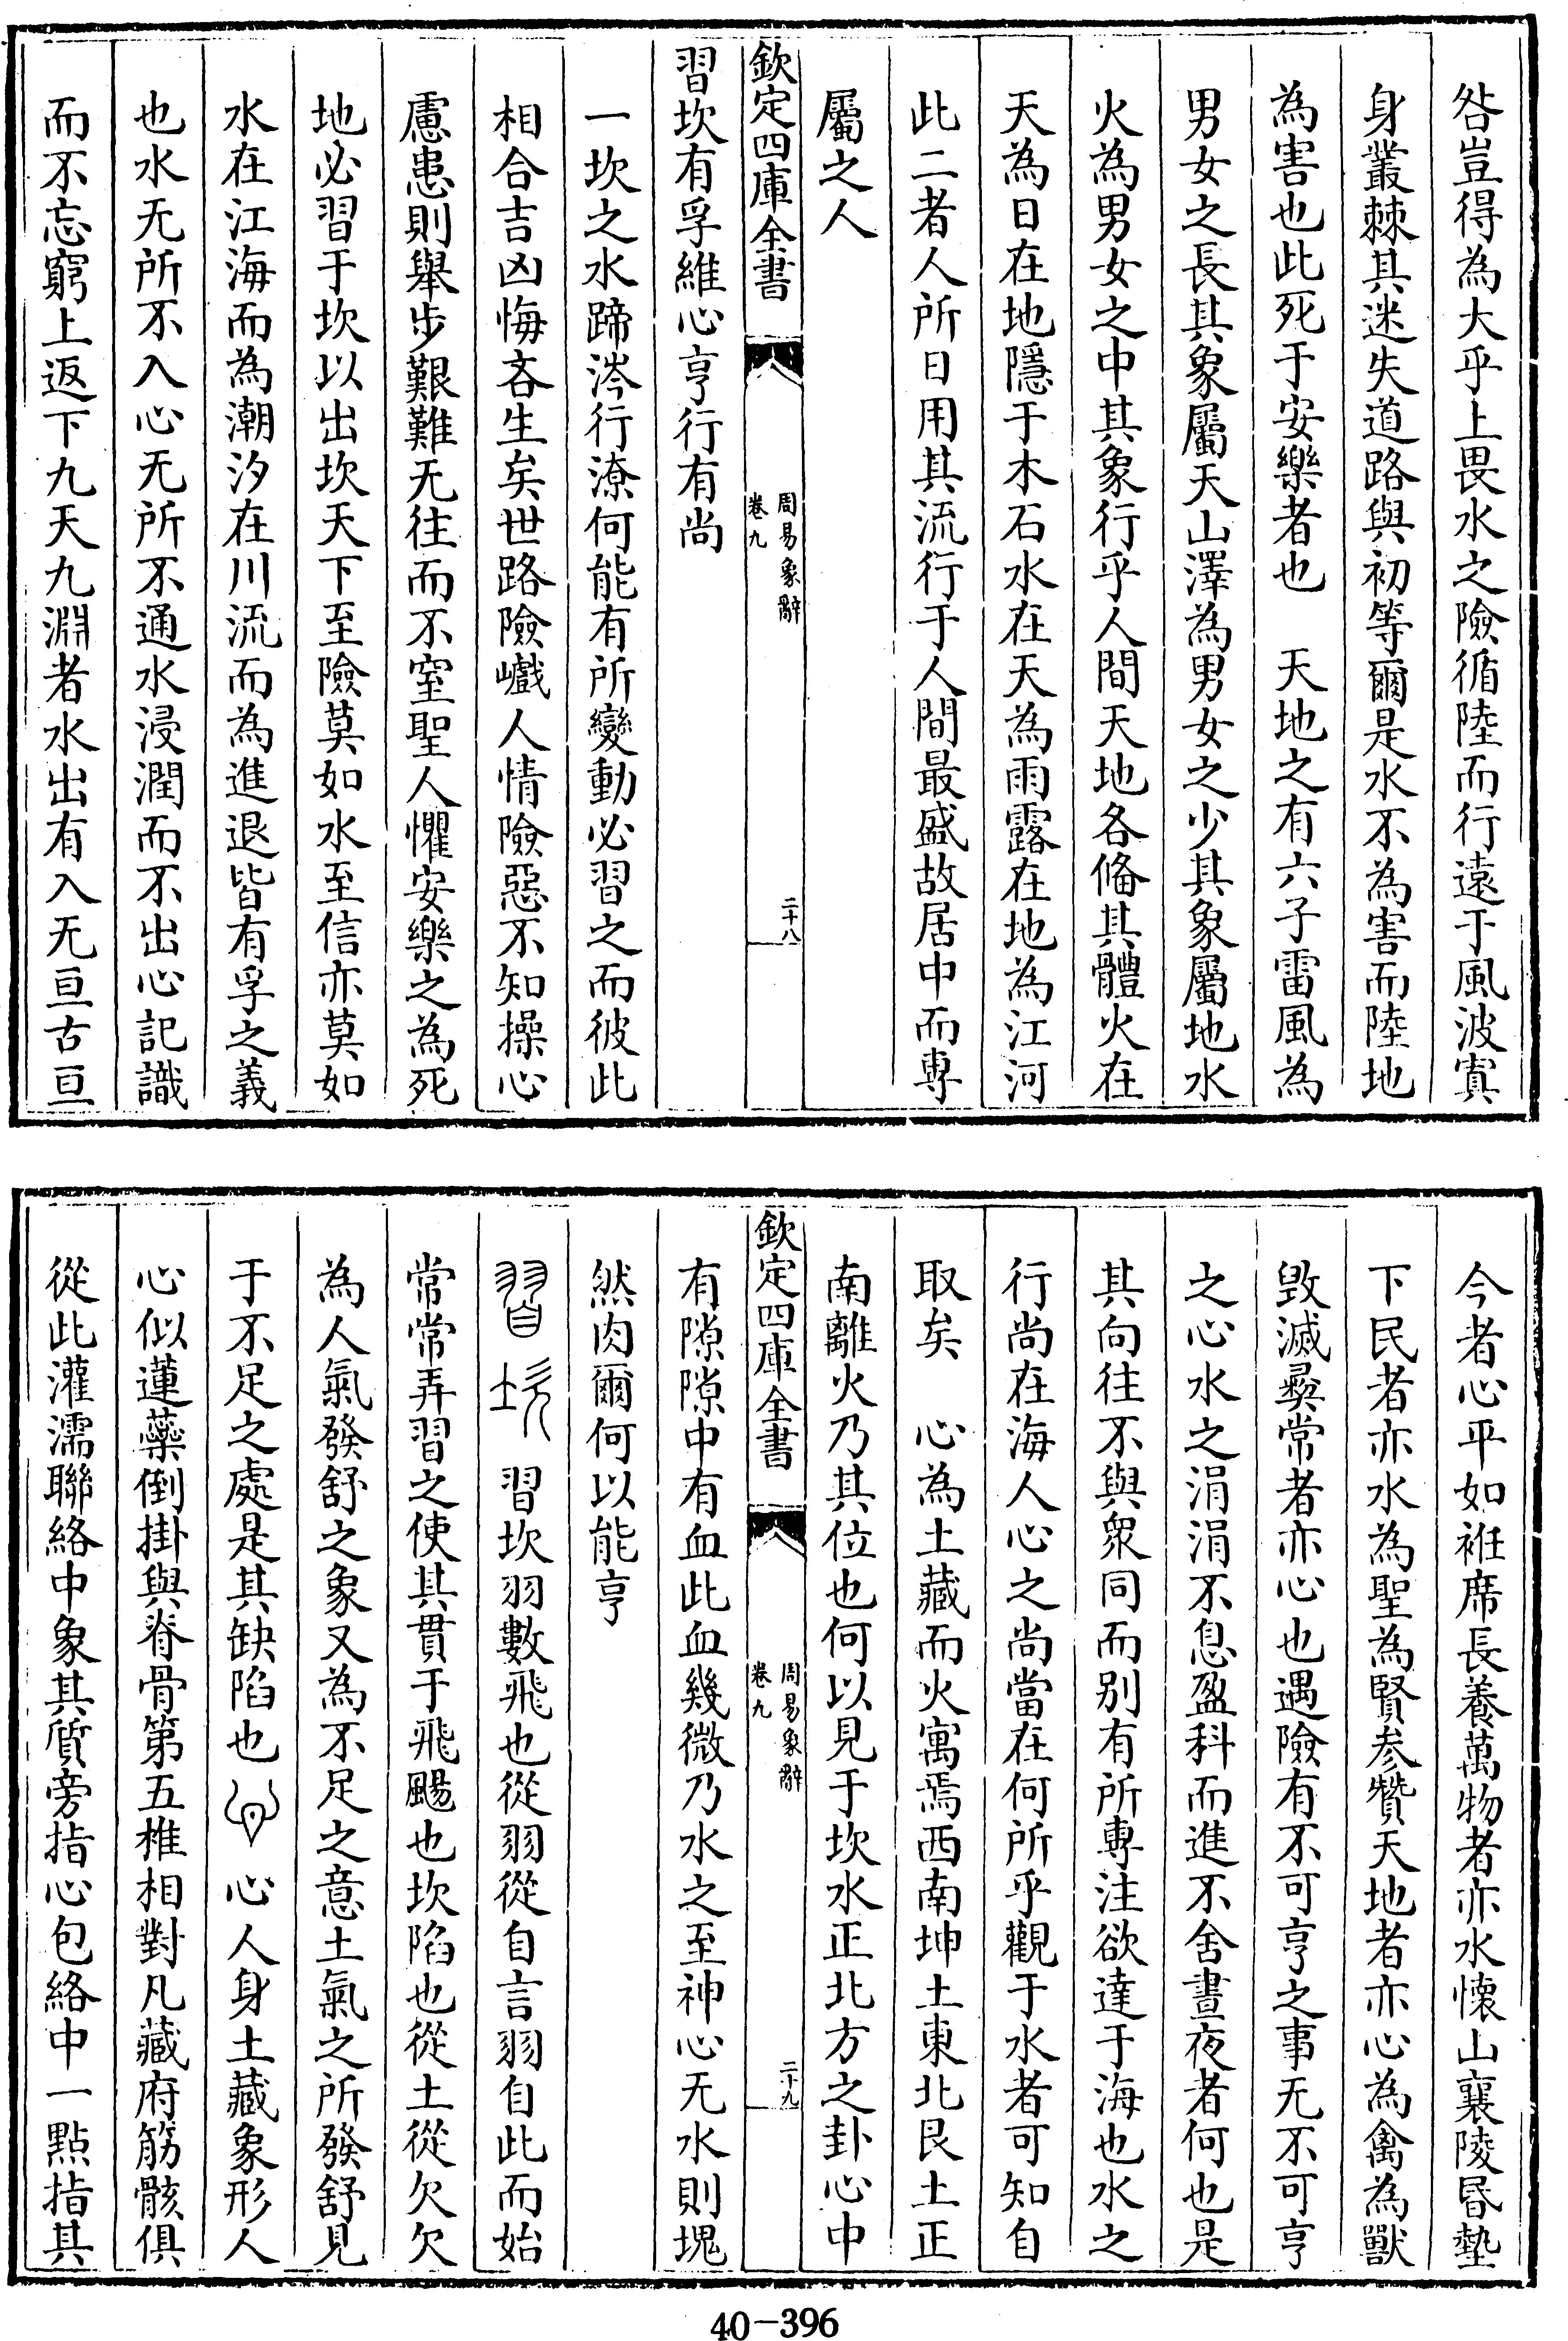 咎豈得為大乎上畏水之險循陸而行遠于風波寘
身叢棘其迷失道路與初等爾是水不為害而陸地
為害也此死于安樂者也　天地之有六子雷風為
男女之長其象屬天山澤為男女之少其象屬地水
火為男女之中其象行乎人間天地各俻其體火在
天為日在地隱于木石水在天為雨露在地為江河
此二者人所日用其流行于人間最盛故居中而專
屬之人
欽定四庫全書
周易象辭
卷九
二十八
習坎有孚維心亨行有尚
一坎之水蹄涔行潦何能有所變動必習之而彼此
相合吉凶悔吝生矣世路險巇人情險惡不知操心
慮患則舉步艱難无往而不窒聖人懼安樂之為死
地必習于坎以出坎天下至險莫如水至信亦莫如
水在江海而為潮汐在川流而為進退皆有孚之義
也水无所不入心无所不通水浸潤而不出心記識
而不忘窮上返下九天九淵者水出有入无亘古亘
今者心平如袵席長養萬物者亦水懷山襄陵昬墊
下民者亦水為聖為賢参贊天地者亦心為禽為獸
毁滅彞常者亦心也遇險有不可亨之事无不可亨
之心水之涓涓不息盈科而進不舍晝夜者何也是
其向往不與衆同而别有所專注欲達于海也水之
行尚在海人心之尚當在何所乎觀于水者可知自
取矣　心為土藏而火寓焉西南坤土東北艮土正
南離火乃其位也何以見于坎水正北方之卦心中
欽定四庫全書
周易象辭
卷九
二十九
有隙隙中有血此血幾微乃水之至神心无水則塊
然肉爾何以能亨
習坎　習坎羽數飛也從羽從自言羽自此而始
常常弄習之使其貫于飛颺也坎陷也從土從欠欠
為人氣發舒之象又為不足之意土氣之所發舒見
于不足之處是其缺陷也心　心人身土藏象形人
心似蓮蘂倒掛與脊骨第五椎相對凡藏府筋骸俱
從此灌濡聯絡中象其質旁指心包絡中一點指其
40-396